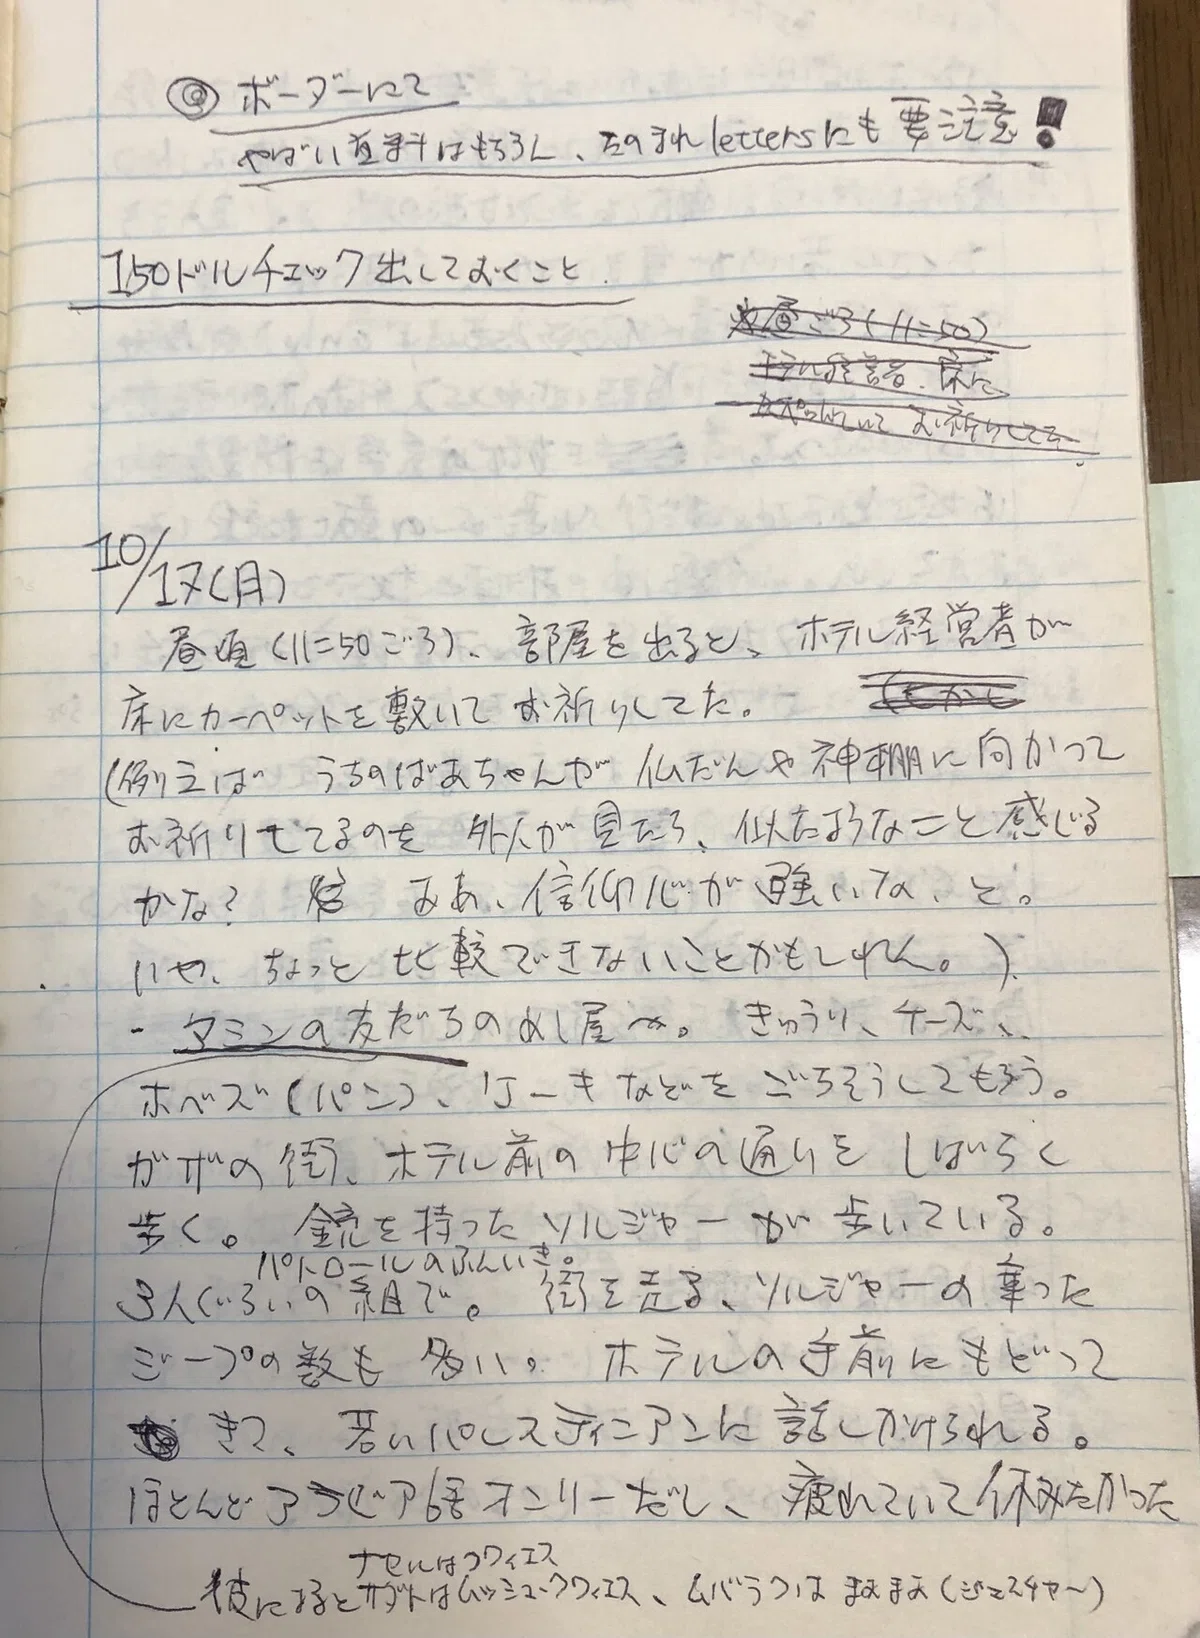 ◎ ボーダーにて
やばい はもちろん、たのまれlettersにも要注意!
150ドルチェック出しておくこと.
昼ごろ(11=50)
ホテル経営者、床に
お祈りしてる
10/17(月)
昼頃(11=50ごろ)、部屋を出ると、ホテル経営者が
床にカーペットを敷いてお祈りしてた。 (しかし
(例えば うちのばあちゃんが 仏だんや神棚に向かって
お祈りしてるのを 外人が見たら、似たようなこと感じる
かな? ああ、信仰心が強いな、と。
いや、ちょっと比較できないことかもしれん。).
- タミンの友だちのめし屋へ。 きゅうり、チーズ、
ホベズ(パン)、ケーキなどをごちそうしてもらう。
ガザの街、ホテル前の中心の通りをしばらく
歩く。 銃を持ったソルジャーが歩いている。
パトロールのふんいき。
3人ぐらいの組で。 街を走る、ソルジャーの乗った
ジープの数も多い。 ホテルの手前にもどって
きて、若いパレスティニアンに話しかけられる。
ほとんどアラビア語オンリーだし、疲れていて休みたかった
ナセルはクワィエス
彼によるとサダトはムッシュークワィエス、ムバラクはまあまあ(ジェスチャー)